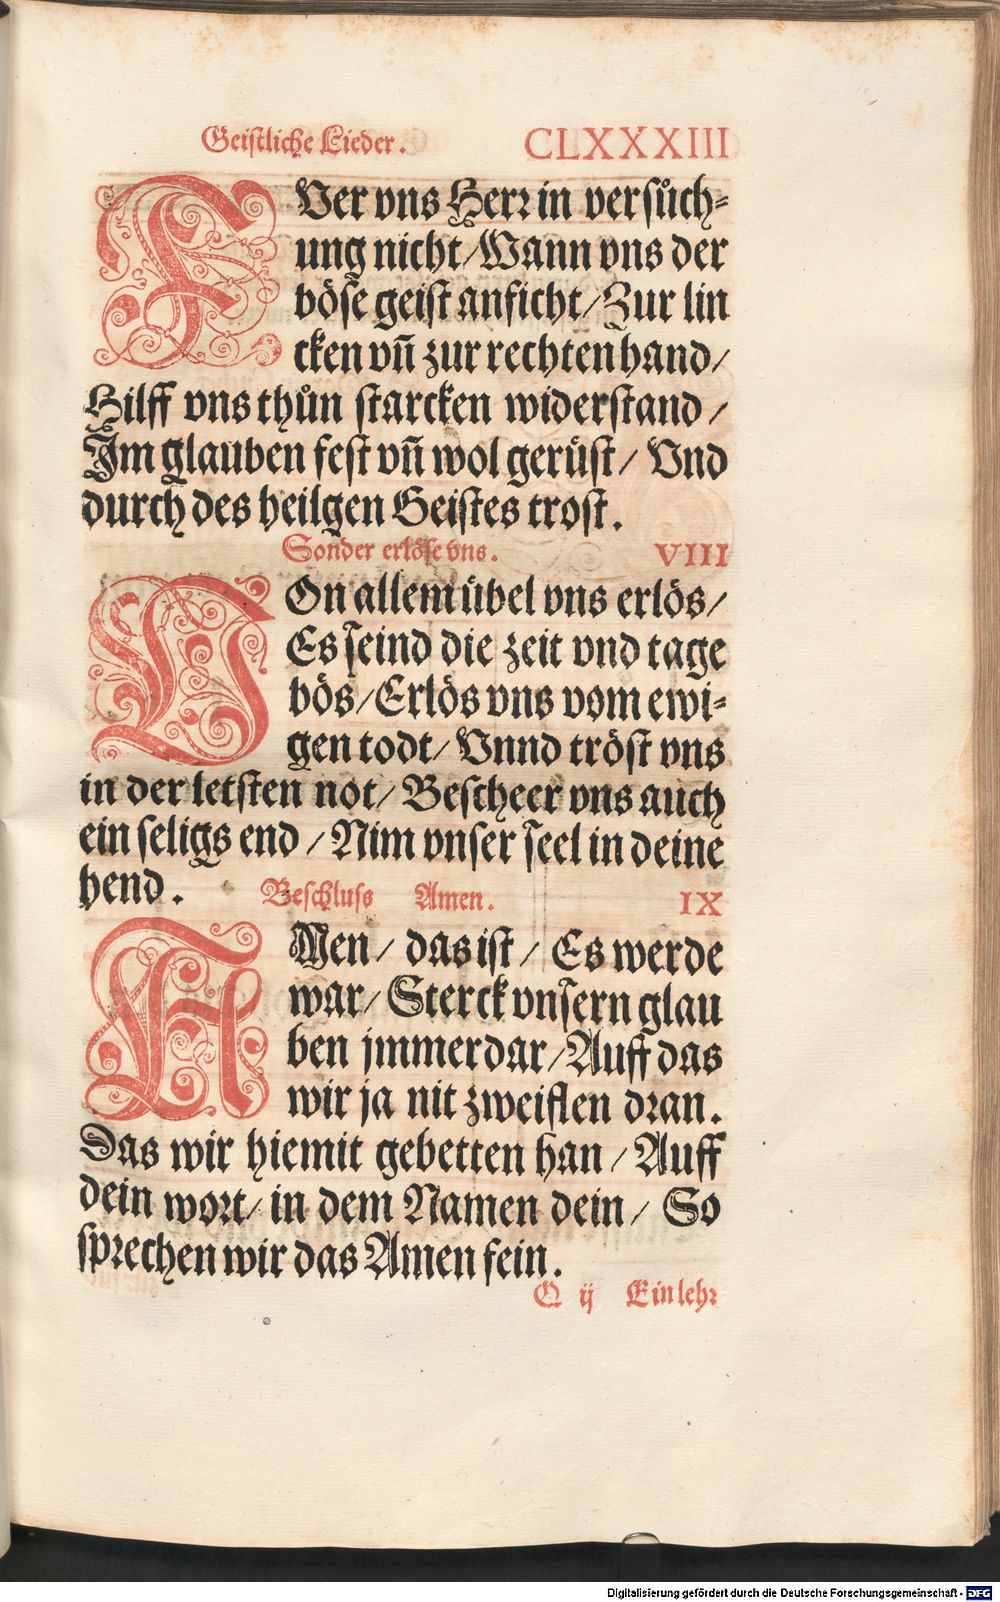 Geistliche Lieder. CLXXXIII
FVer vns Herr in versůch-
ung nicht/Wann vns der
böse geist anficht/Zur lin
cken vñ zur rechten hand/
Hilff vns thůn starcken widerstand/
Im glauben fest vñ wol gerüst/ Vnd
durch des heilgen Geistes trost.
Sonder erlöse vns. VIII
VOn allem übel vns erlös/
Es seind die zeit vnd tage
bös/Erlös vns vom ewi-
gen todt/ Vnnd tröst vns
in der letsten not/ Bescheer vns auch
ein seligs end/Nim vnser seel in deine
hend.
Beschluss Amen. IX
AMen/ das ist/ Es werde
war/ Sterck vnsern glau
ben jmmerdar/Auff das
wir ja nit zweiflen dran.
Das wir hiemit gebetten han/ Auff
dein wort/ in dem Namen dein/ So
sprechen wir das Amen fein.
Q ij Ein lehr
Digitalisierung gefördert durch die Deutsche Forschungsgemeinschaft - DFG